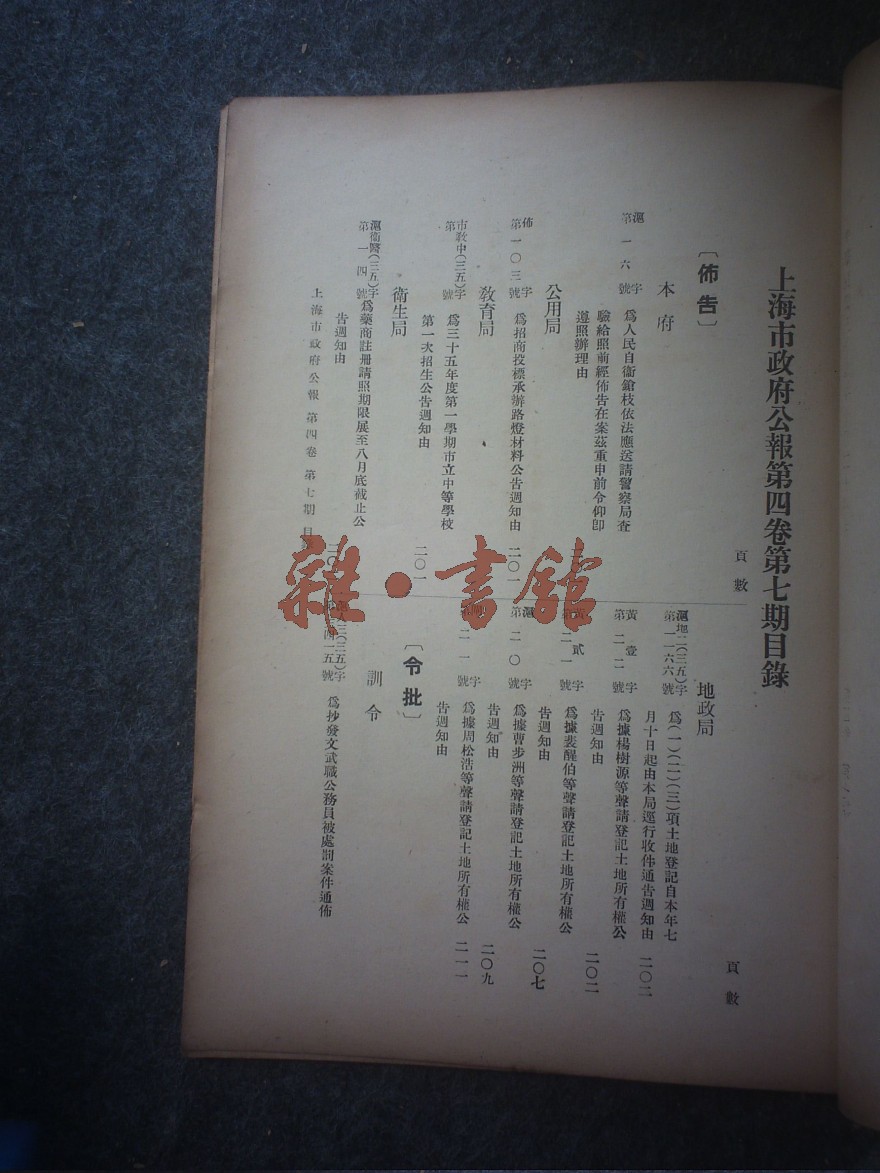 上海市政府公報第四卷第七期目錄
頁數
〔佈告〕
本府
滬字第一六號
為人民自衞鎗枝依法應送請警察局查
驗給照前經佈告在案茲重申前令仰卽
遵照辦理由
公用局
佈字第一〇三號
為招商投標承辦路燈材料公告週知由
二〇一
教育局
市敎中(三五)字第 號
為三十五年度第一學期市立中等學校
第一次招生公告週知由
二〇一
衞生局
滬衞醫(三五)字第一四號
為藥商註册請照期限展至八月底截止公
告週知由
頁數
地政局
滬地二(三五)字第一一六六號
為(一)(二)(三)項土地登記自本年七
月十日起由本局逕行收件通告週知由
二〇二
黃字第壹二二號
為據楊樹源等聲請登記土地所有權公
告週知由
二〇二
黃字第貳二一號
為據裴醒伯等聲請登記土地所有權公
告週知由
二〇七
滬字第二〇號
為據曹步洲等聲請登記土地所有權公
告週知由
二〇九
字第二一號
為據周松浩等聲請登記土地所有權公
告週知由
二一一
〔令批〕
訓令
(三五)字 四一五號
為抄發文武職公務員被處罰案件通佈
上海市政府公報 第四卷 第七期 目
雜·書館